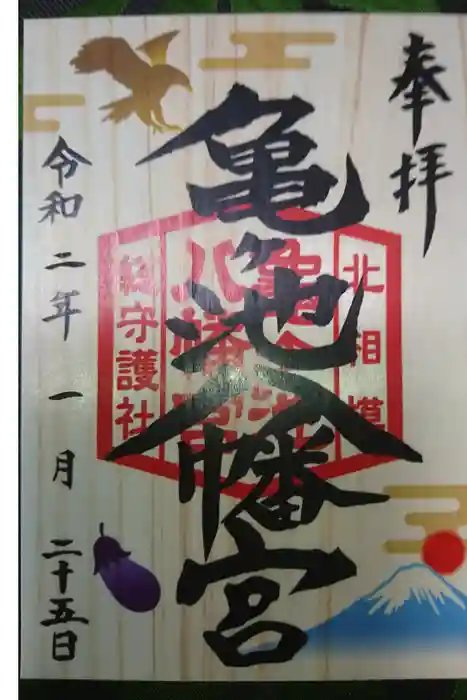 奉拝
亀ヶ池八幡宮
北相模
亀ヶ池
八幡宮
総守護社
令和二年一月二十五日